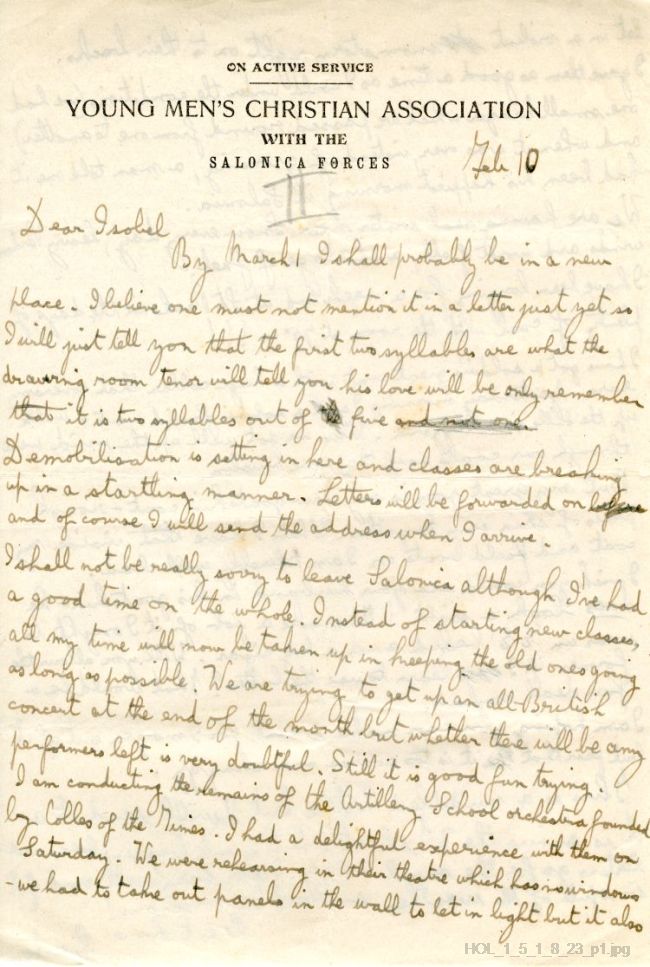 ON ACTIVE SERVICE
YOUNG MEN'S CHRISTIAN ASSOCIATION
WITH THE
SALONICA FORCES
Feb 10
II
Dear Isobel
By March 1 I shall probably be in a new
place. I believe one must not mention it in a letter just yet so
I will just tell you that the first two syllables are what the
drawing room tenor will tell you his love will be only remember
that it is two syllables out of five and not one.
Demobilisation is setting in here and classes are breaking
up in a startling manner. Letters will be forwarded on
and of course I will send the address when I arrive.
I shall not be really sorry to leave Salonica although I've had
a good time on the whole. Instead of starting new classes,
all my time will now be taken up in keeping the old ones going
as long as possible. We are trying to get up an all-British
concert at the end of the month but whether there will be any
performers left is very doubtful. Still it is good fun trying.
I am conducting the remains of the Artillery School orchestra founded
by Colles of the Times. I had a delightful experience with them on
Saturday. We were rehearsing in their theatre which has no windows
- we had to take out panels in the wall to let in light but it also
HOL_1_5_1_8_23_p1.jpg